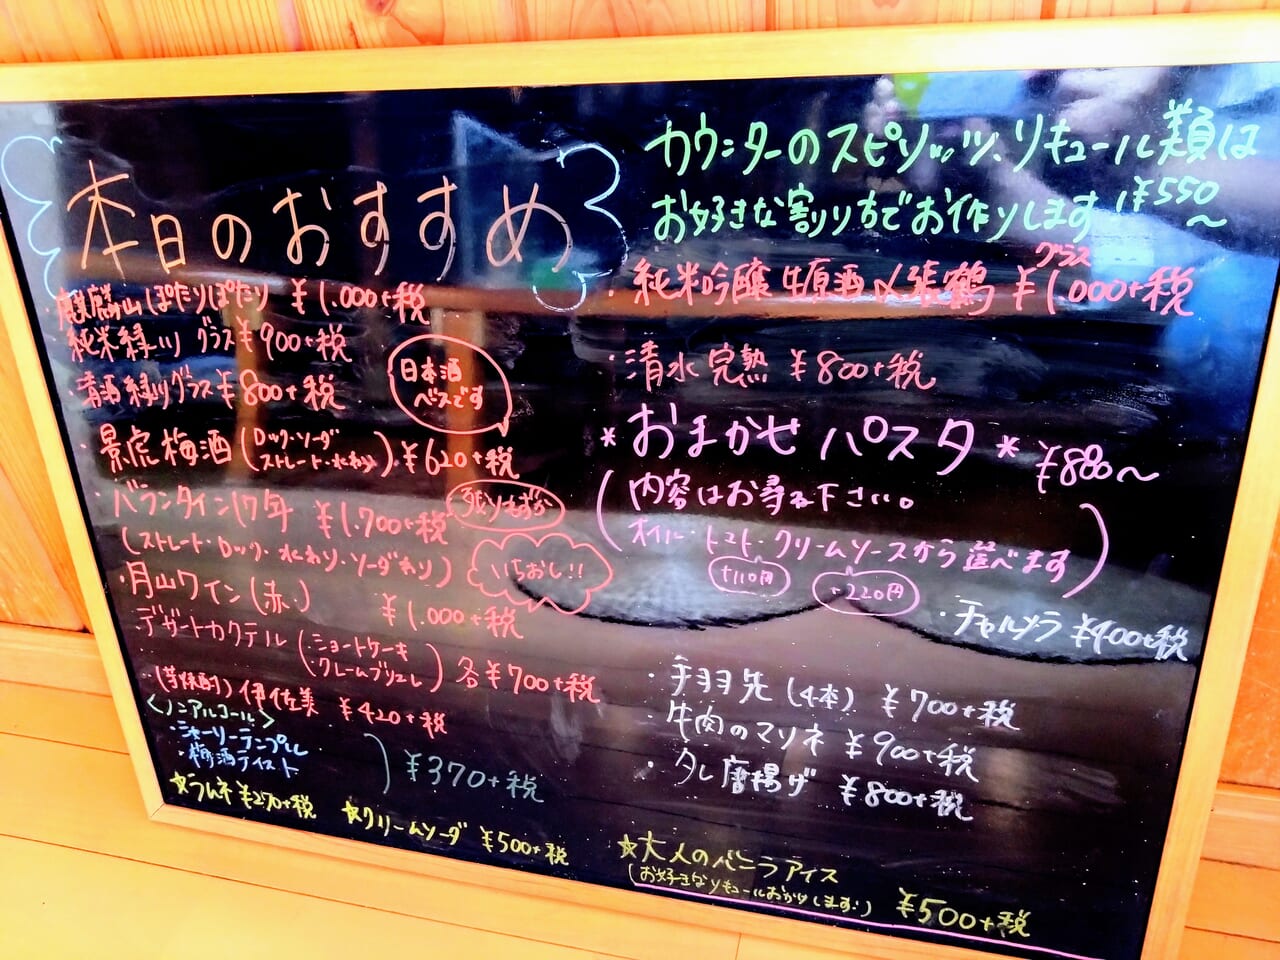 本日のおすすめ
・麒麟山ぽたりぽたり ¥1.000+税
純米緑川 グラス¥900+税
・清酒緑川グラス¥800+税
日本酒
ベースです
・景虎梅酒(ロック・ソーダ
ストレート・水わり) ¥620+税
・バランタイン17年 ¥1.700+税
残りわずか
(ストレート・ロック・水わり・ソーダわり)
いちおし!!
・月山ワイン(赤) ¥1.000+税
デザートカクテル(・ショートケーキ
・クレームブリュレ) 各¥700+税
・(芋焼酎)伊佐美 ¥420+税
<ノンアルコール>
・シャーリーテンプル
・梅酒テイスト
¥370+税
☆ラムネ¥270+税
☆クリームソーダ ¥500+税
カウンターのスピリッツ、リキュール類は
お好きな割り方でお作りします ¥550〜
グラス
・純米吟醸生原酒〆張鶴 ¥1,000+税
・清水完熟 ¥800+税
*おまかせパスタ* ¥880〜
(内容はお尋ね下さい。
オイル・トマト・クリームソースから選べます)
+110円
+220円
・チャルメラ¥400+税
・手羽先(4本) ¥700+税
・牛肉のマリネ ¥900+税
・タレ唐揚げ ¥800+税
☆大人のバニラアイス
(お好きなリキュールおかけします!)
¥500+税